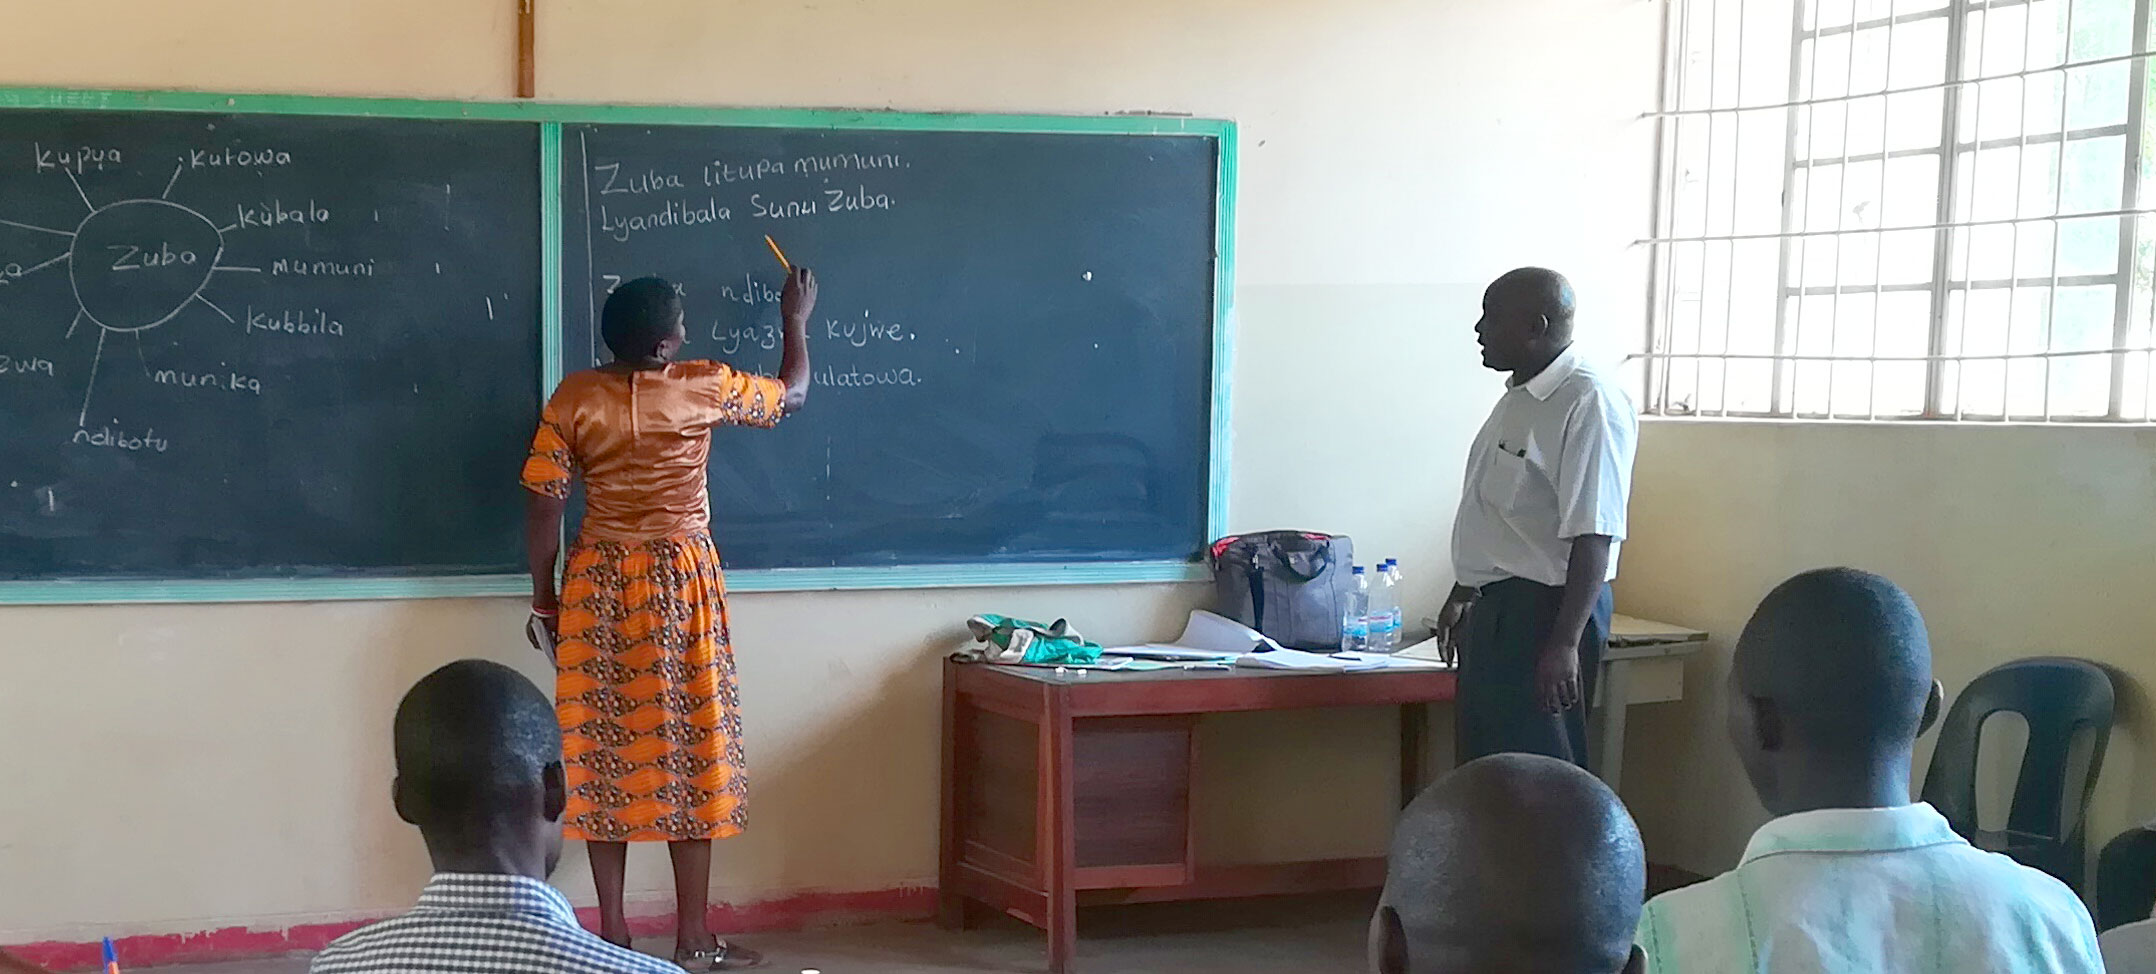 Kupya
Kutowa
Kubala
Zuba
mumuni
Kubbila
munika
ndibotu
Zuba litupa mumuni.
Lyandibala Sunu Zuba.
Kujwe.
ulatowa.